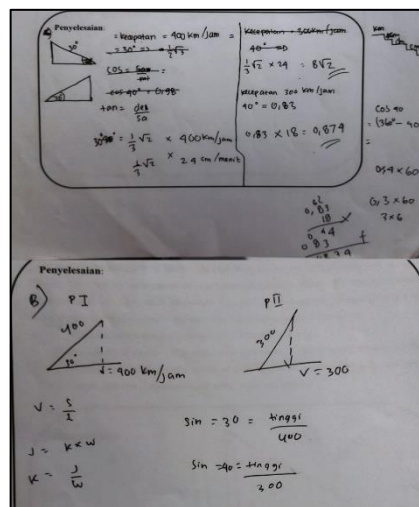 Penyelesaian:
= kecepatan = 400 km/jam =
30°
= 30° => = 1/2 √3
cos = sa/mi =
cos 40° = 0,98
tan = des/sa
30° = 1/3 √2 × 400 km/jam
1/3 √2 × 24 cm/menit
kecepatan = 300 km/jam
40° =
1/3 √2 × 24 = 8√2
kecepatan 300 km/jam
40° = 0,83
0,83 × 18 = 0,874
km
cos 40
=
× 60
0,3 × 60
3 × 6
0,83
18 ×
Penyelesaian:
B) P I
400
30°
v = 400 km/jam
P II
300
v = 300
V = s/t
J = K × W
K = J/W
sin = 30 = tinggi/400
sin = 40 = tinggi/300